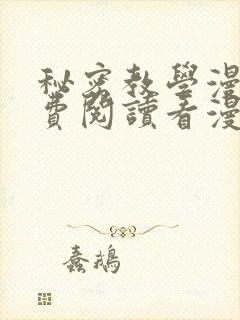 秘密教學漫
費閱讀看漫
蠢鵝